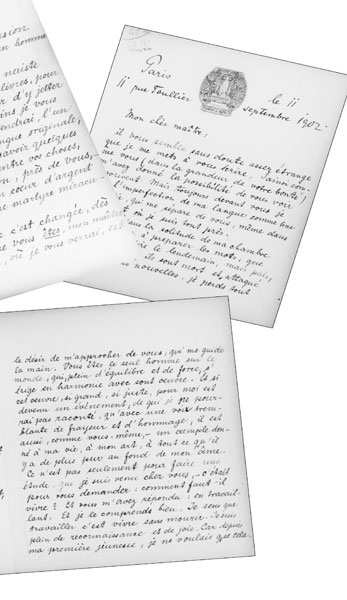 usion
un homme
livres, pour
r d'y jetter
ins je vous
endrai; l'un
ngue originale,
savoir quelques
entre vos choses,
on, près de vous,-
r coeur d'argent
ne martyre miracu-
e c'est changée, dès
e vous êtes, mon maître
, où je vous verrai, est
Paris
11 rue Toullier
le 11
septembre 1902.
Mon cher maître,
il vous semble sans doute assez étrange
que je me mets à vous écrire, puisque
me vous (dans la grandeur de votre bonté)
m'avez donné la possibilité de vous voir
. Mais toujours devant vous je
l'imperfection de ma langue comme une
qui me sépare de vous, même dans
où je suis tout près.
s la solitude de ma chambre
à préparer les mots, que
re le lendemain, mais puis,
ils sont mort et, attaqué
s nouvelles, je perds tout
le désir de m'approcher de vous, qui me guide
la main. Vous êtes le seul homme sur le
monde, qui, plein d'équilibre et de force, s'é-
rige en harmonie avec son oeuvre. Et si
cet oeuvre, si grand, si juste, pour moi est
devenu un événement, de qui je ne pour-
rai pas raconter, qu'avec une voix trem-
blante de frayeur et d'hommage, il est
aussi, comme vous-même,- un exemple don-
né à ma vie, à mon art, à tout ce qu'il
y a de plus peur au fond de mon âme.
Ce n'est pas seulement pour faire une
étude, que je suis venu chez vous,- c'était
pour vous demander: comment faut-il
vivre? Et vous m'avez répondu: en travail-
lant. Et je le comprends bien. Je sens que
travailler c'est vivre sans mourir. Je suis
plein de reconnaissance et de joie. Car depuis
ma première jeunesse, je ne voulais que cela.